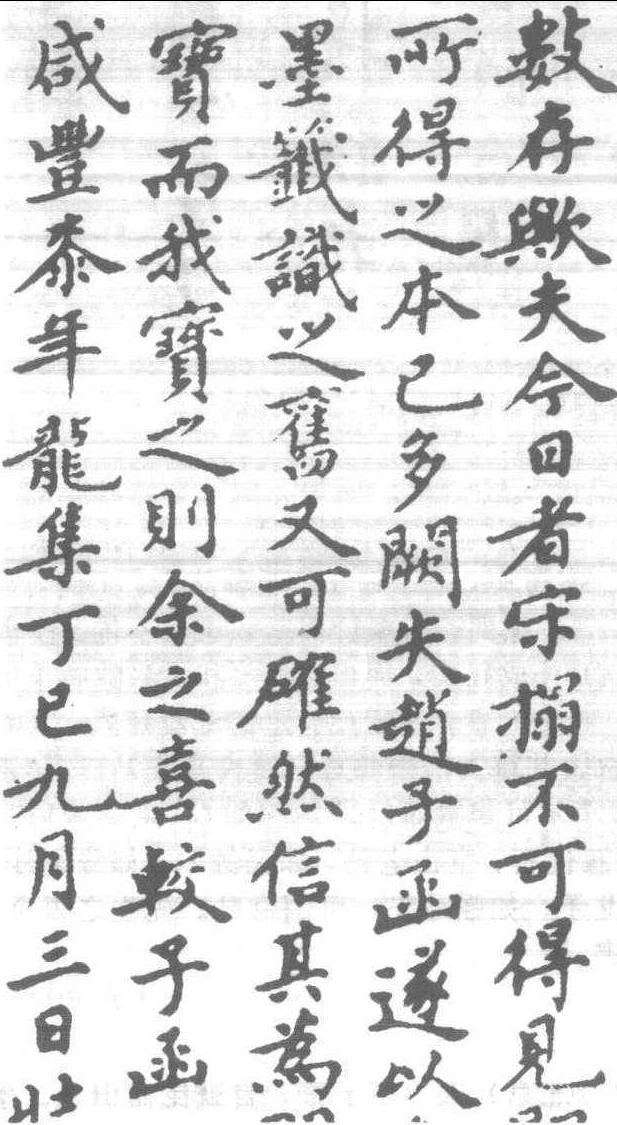 數存歟夫今日者宋搨不可得見
所得之本已多闕失趙子函遂以
墨籤識之舊又可確然信其為
寶而我寶之則余之喜較子函
咸豐桼年龍集丁巳九月三日壯